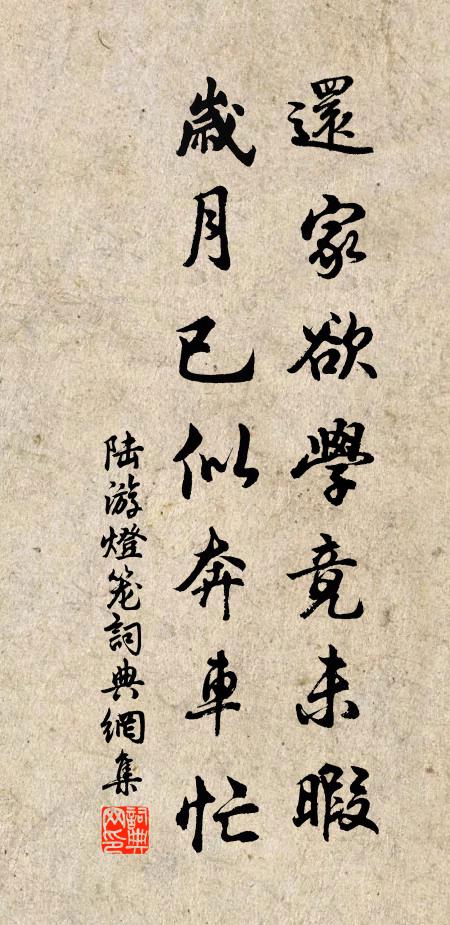 還家欲學竟未暇
歲月已似奔車忙
陸游燈笼詞典網集
詞典网印